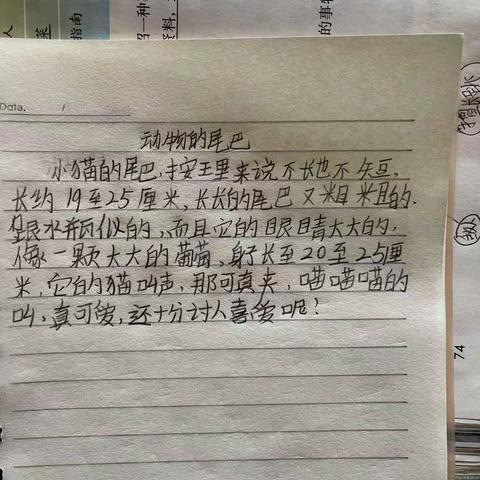 人
菜
指南
召一种
资料，
的事物
擅长
Date.
动物的尾巴
小猫的尾巴，按王里来说不长也不短，
长约19至25厘米，长长的尾巴又粗粗的．
跟水瓶似的，而且它的眼睛大大的．
像一颗大大的葡萄、身子长至20至25厘
米，它的猫叫声，那可真夹，喵喵喵的
叫，真可爱，还十分讨人喜爱呢！
74